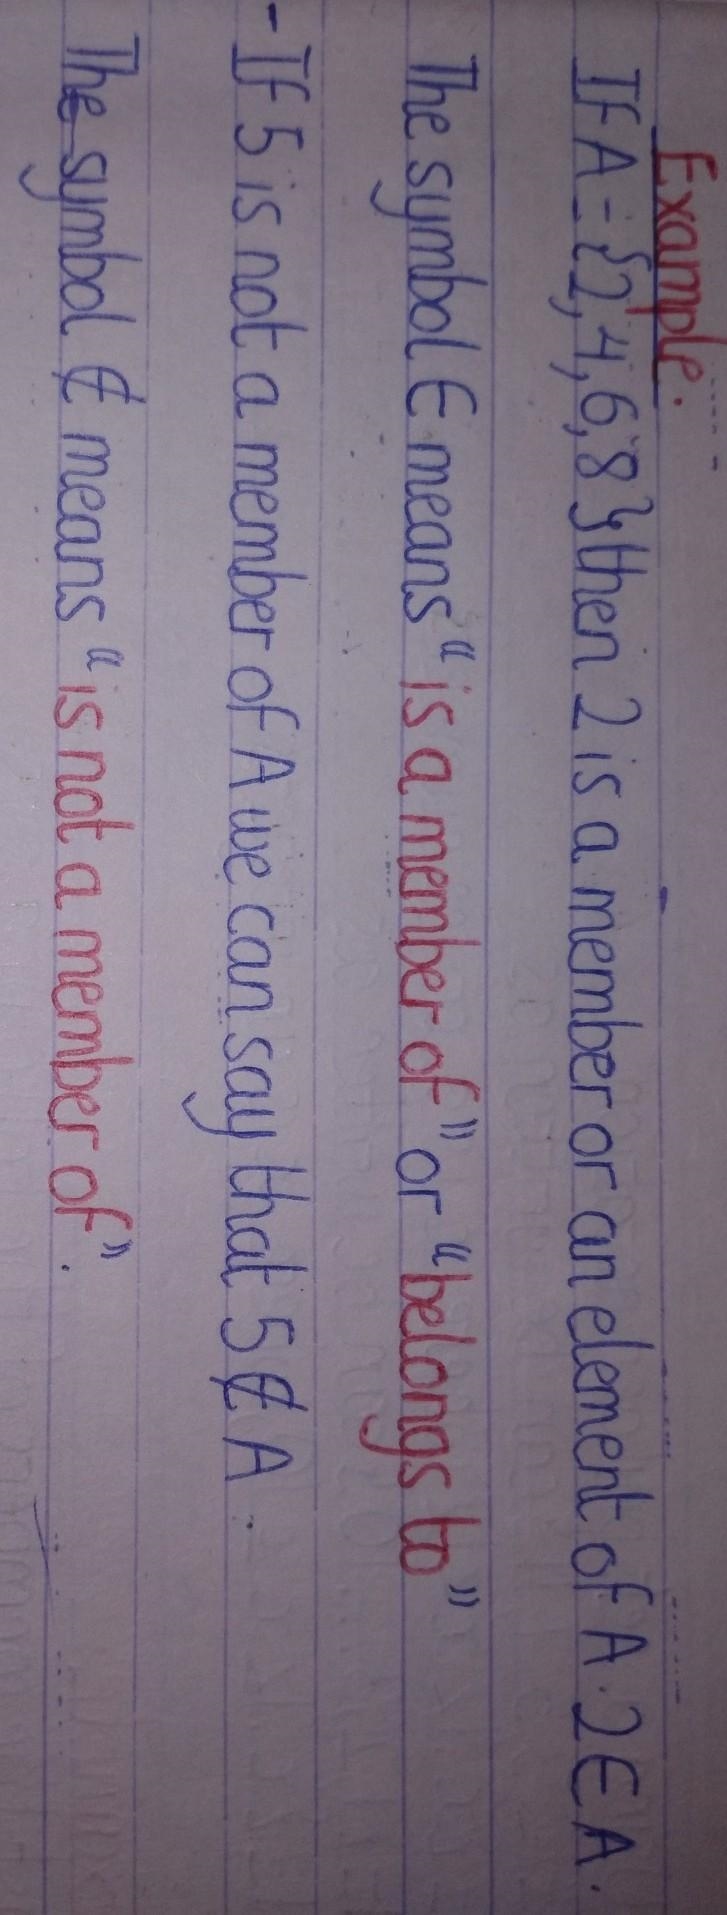 Example.
If A = {2, 4, 6, 8} then 2 is a member or an element of A. 2 ∈ A.
The symbol ∈ means "is a member of" or "belongs to"
- If 5 is not a member of A we can say that 5 ∉ A.
The symbol ∉ means "is not a member of".